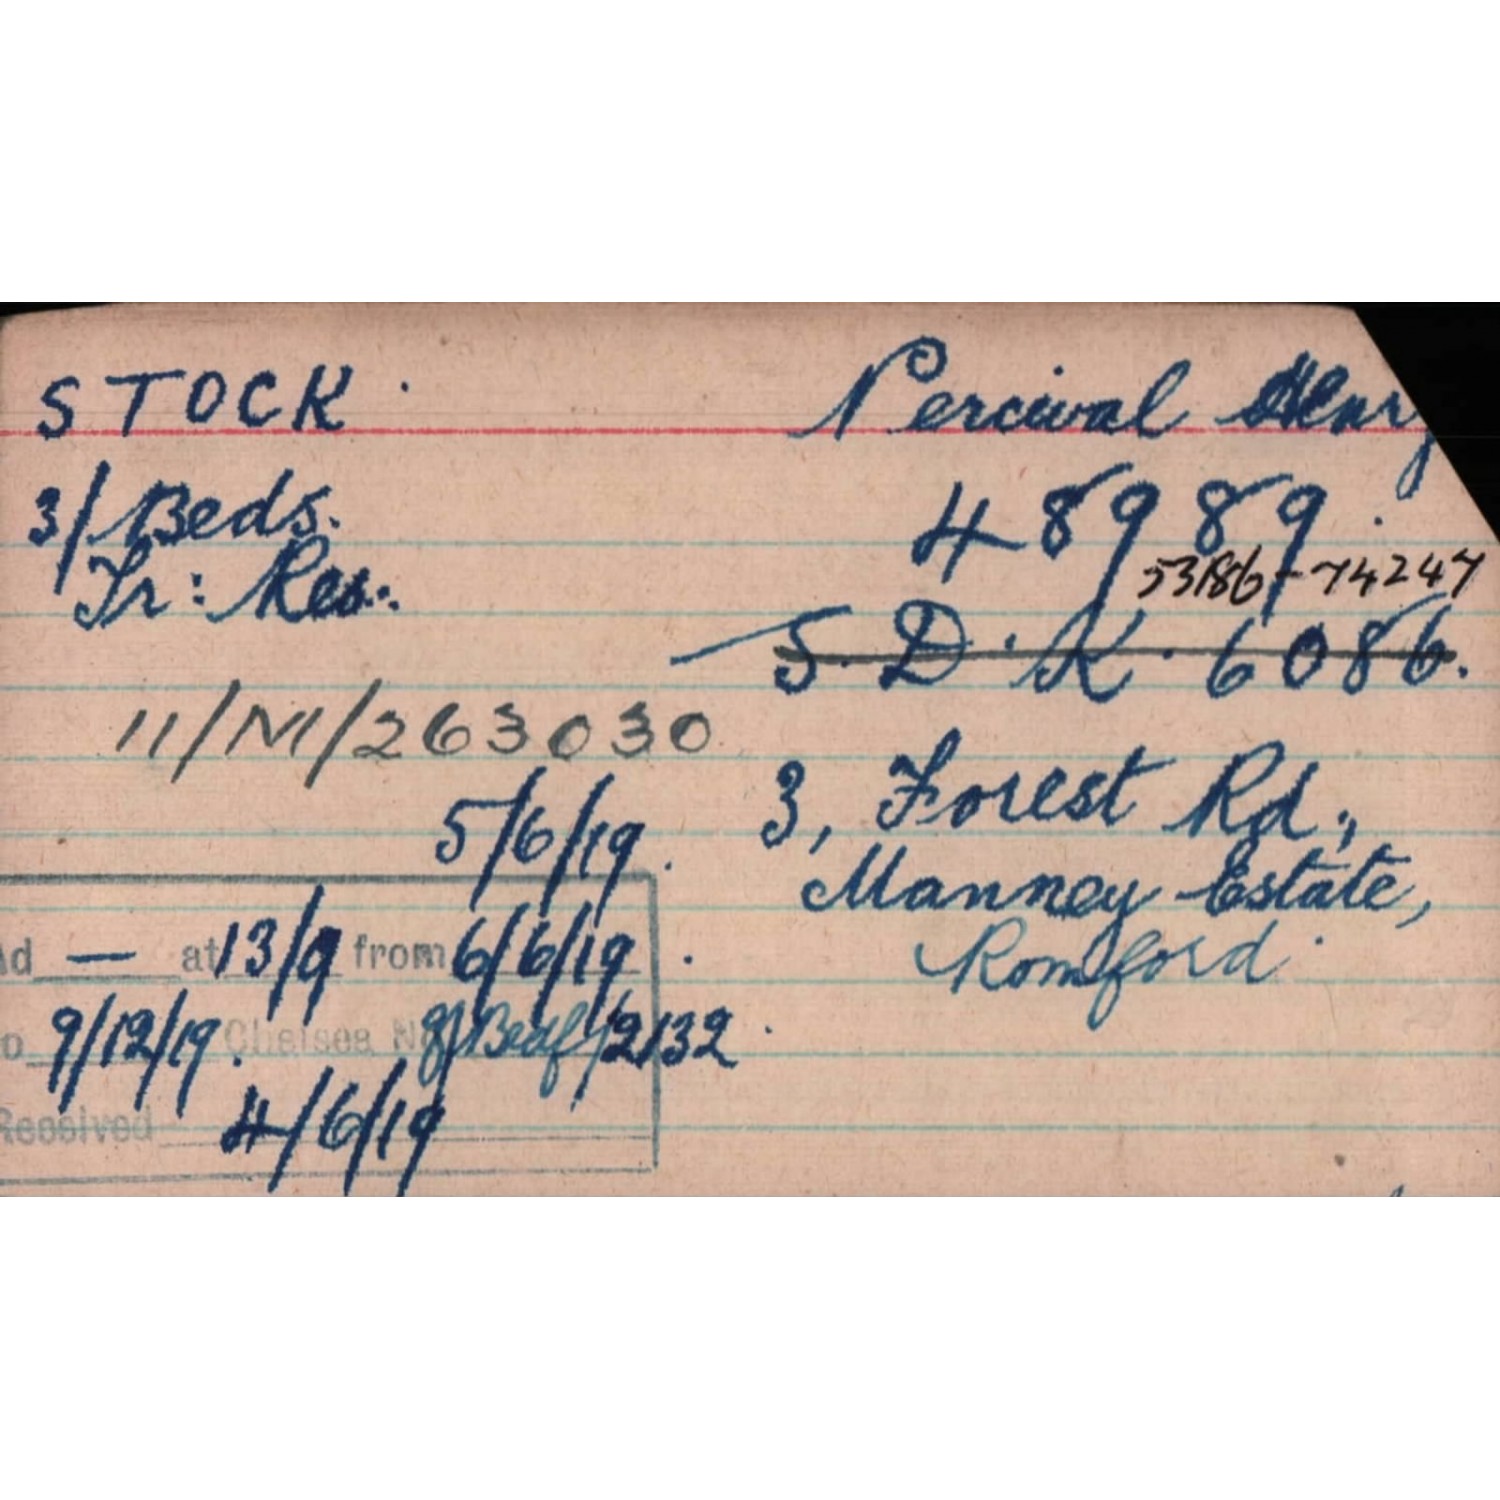 STOCK. Percival Henry
3/Beds. 48989.
Tr: Res. 53186-74247
S.D.K.6086.
11/M/263030
5/6/19. 3, Forest Rd.,
Manney Estate,
Ad — at 13/9 from 6/6/19. Romford.
to 9/12/19. Chelsea No 8/Bedf/2132.
Received 4/6/19